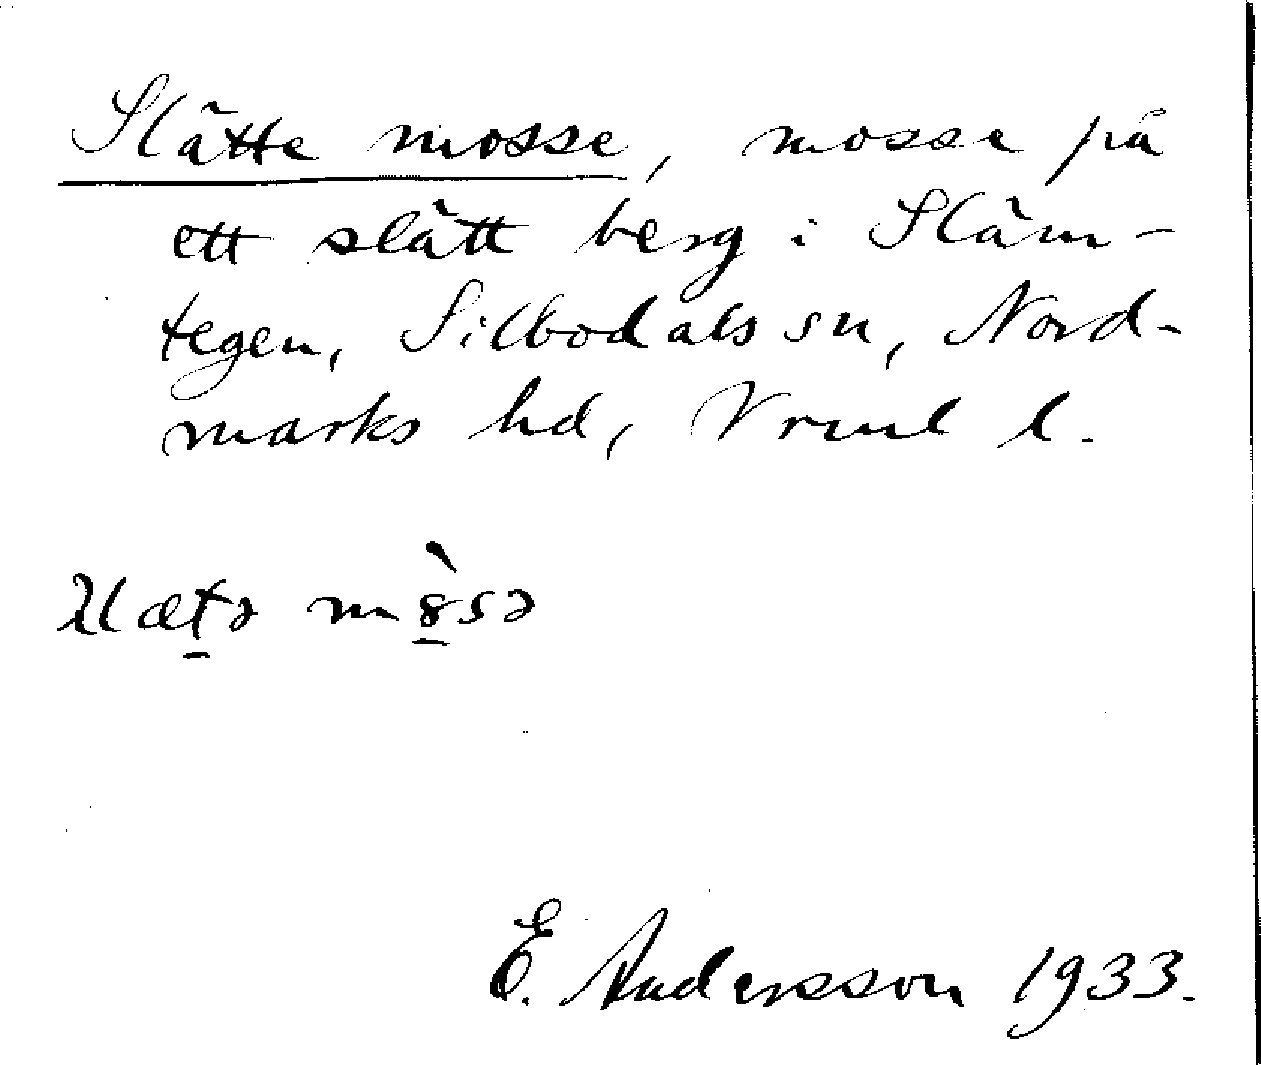 Slätte mosse, mosse på
ett slätt berg i Släm-
tegen, Silbodals sn, Nord-
marks hd, Vrml l.
mòsə
E. Andersson 1933.